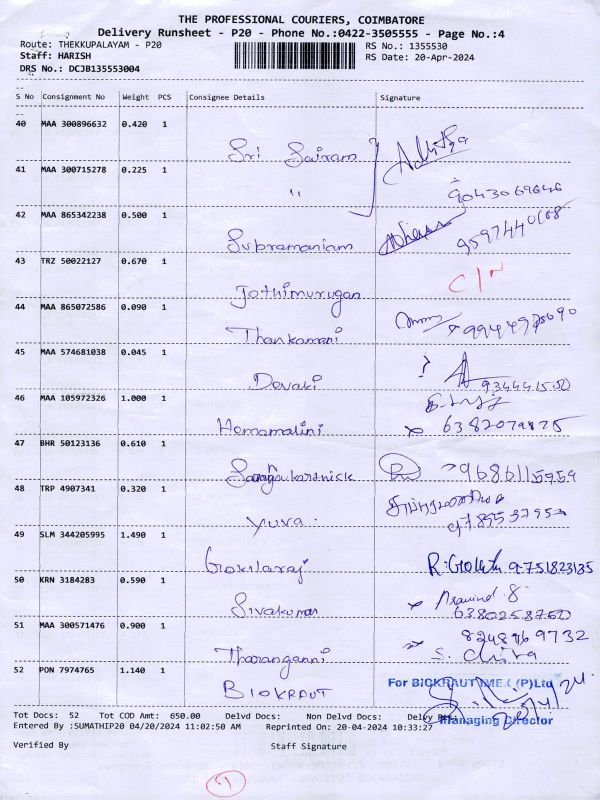 THE PROFESSIONAL COURIERS, COIMBATORE
Delivery Runsheet - P20 - Phone No.:0422-3505555 - Page No.:4
Route: THEKKUPALAYAM - P20
RS No.: 1355530
Staff: HARISH
RS Date: 20-Apr-2024
DRS No.: DCJB135553004
S No Consignment No Weight PCS Consignee Details Signature
40 MAA 300896632 0.420 1 Sri Sairam
41 MAA 300715278 0.225 1 "
9043069646
42 MAA 865342238 0.500 1 Subramaniam
43 TRZ 50022127 0.670 1 Jothimurugan
44 MAA 865072586 0.090 1 Thankamani
45 MAA 574681038 0.045 1 Devaki
46 MAA 105972326 1.000 1 Hemamalini
47 BHR 50123136 0.610 1
48 TRP 4907341 0.320 1 Yuva
49 SLM 344205995 1.490 1 Gokilaraj 9751823135
50 KRN 3184283 0.590 1 Sivakumar Aravind S
51 MAA 300571476 0.900 1 Tharanganni 8248969732
S. Chitra
52 PON 7974765 1.140 1 BIOKRAUT
Managing Director
Tot Docs: 52 Tot COD Amt: 650.00 Delvd Docs: Non Delvd Docs:
Entered By :SUMATHIP20 04/20/2024 11:02:50 AM Reprinted On: 20-04-2024 10:33:27
Verified By Staff Signature
1